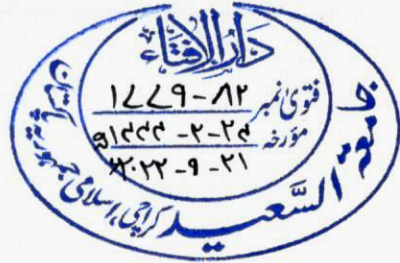 دارالافتاء
فتویٰ نمبر
مؤرخہ ۲۴-۲-۱۴۴۴ھ
۲۱-۹-۲۰۲۲ء
جامعة السَّعید کراچی، اسلامی جمہوریہ پاکستان